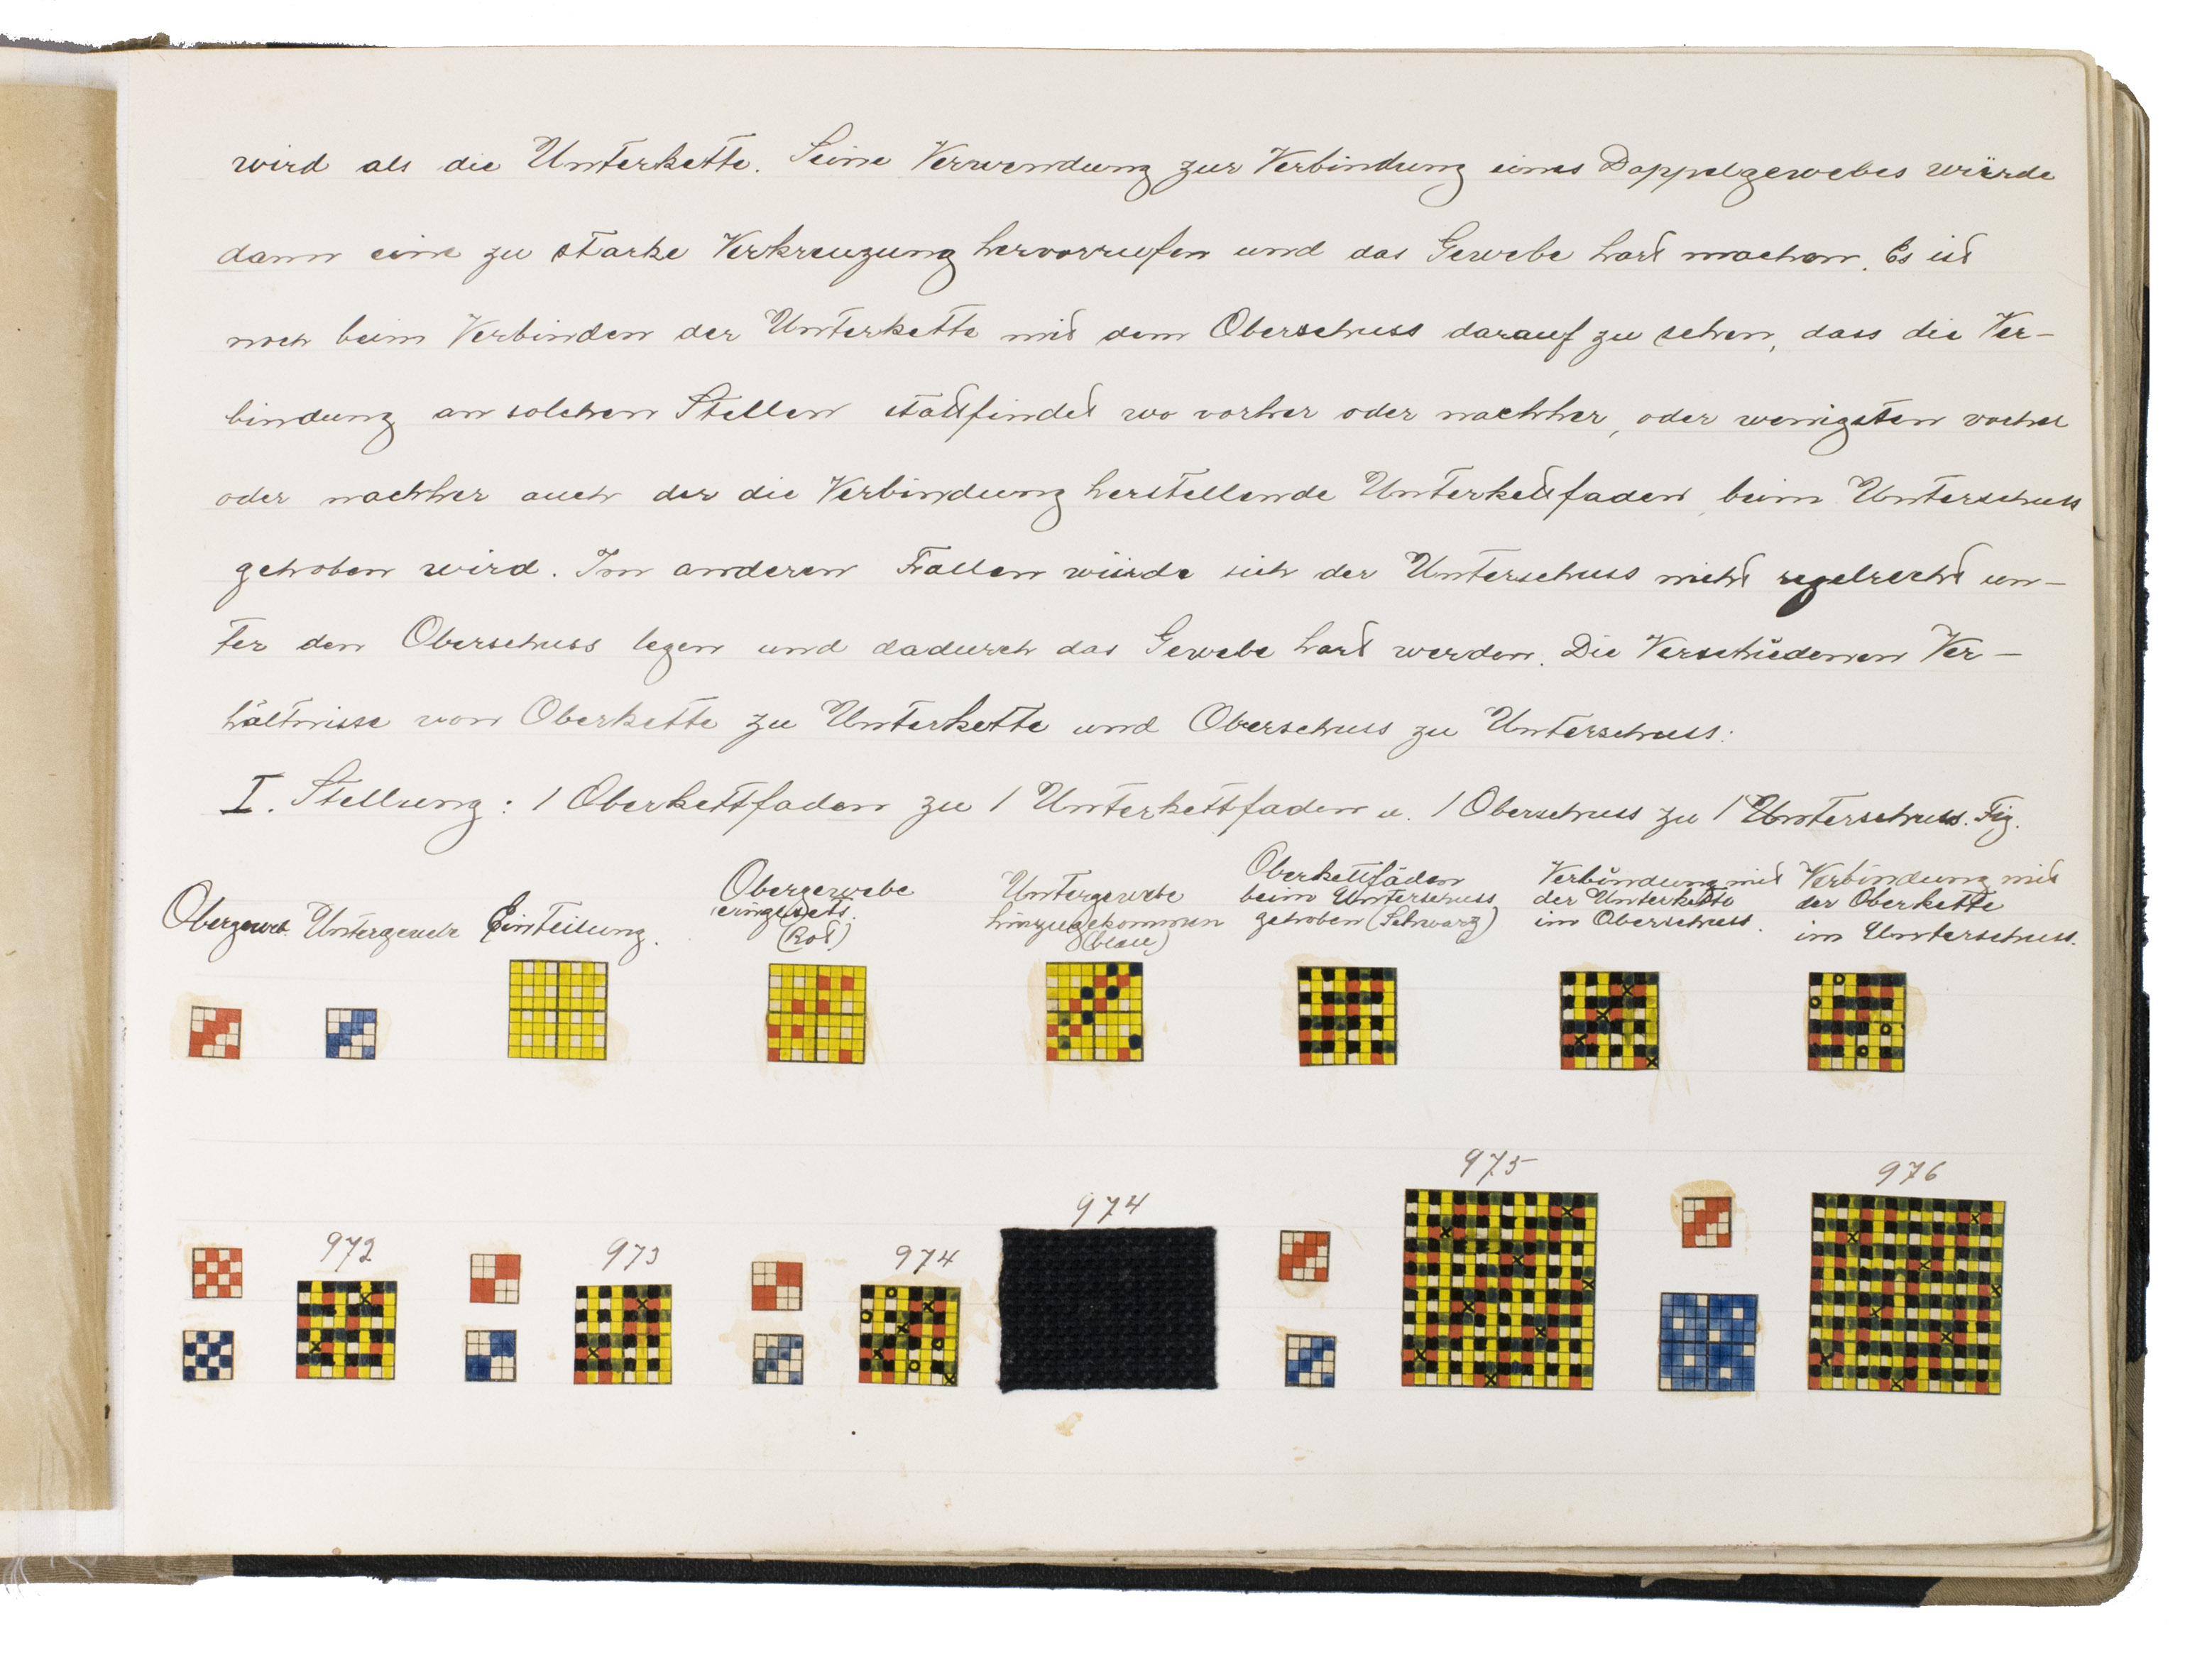 wird als die Unterkette. Seine Verwendung zur Verbindung eines Doppelgewebes würde
dann eine zu starke Verkreuzung hervorrufen und das Gewebe hart machen. Es ist
noch beim Verbinden der Unterkette mit dem Oberschuss darauf zu sehen, dass die Ver-
bindung an solchen Stellen stattfindet wo vorher oder nachher, oder wenigsten vorher
oder nachher auch der die Verbindung herstellende Unterkettfaden beim Unterschuss
gehoben wird. Im anderen Fallen würde sich der Unterschuss nicht regelrecht un-
ter den Oberschuss legen und dadurch das Gewebe hart werden. Die Verschiedenen Ver-
hältnisse von Oberkette zu Unterkette und Oberschuss zu Unterschuss:
I. Stellung: 1 Oberkettfaden zu 1 Unterkettfaden u. 1 Oberschuss zu 1 Unterschuss. Fig.
Obergewe. Untergewebe Einteilung.
Obergewebe
eingesetzt.
(Rot)
Untergewebe
hinzugekommen
(blau)
Oberkettfäden
beim Unterschuss
gehoben (Schwarz)
Verbindung mit
der Unterkette
im Oberschuss.
Verbindung mit
der Oberkette
im Unterschuss.
972
973
974
974
975
976